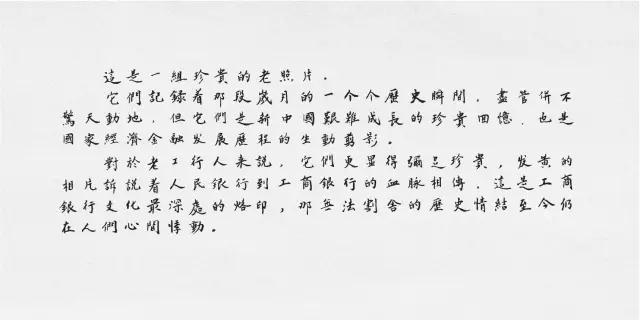 這是一組珍貴的老照片.
它們記録着那段歲月的一个个歷史瞬間, 盡管併不
驚天動地, 但它們是新中國艱難成長的珍貴回憶, 也是
國家經濟金融发展歷程的生動剪影.
對於老工行人来説, 它們更显得彌足珍貴, 发黄的
相片訴説着人民銀行到工商銀行的血脉相傳, 這是工商
銀行文化最深處的烙印, 那無法割舍的歷史情結至今仍
在人們心間悸動。